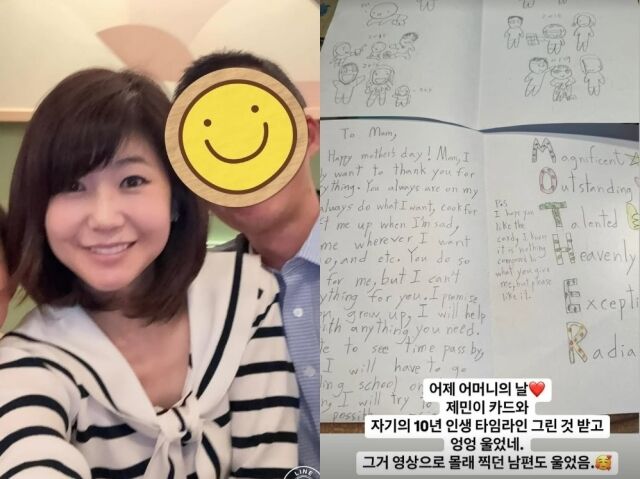 2018
To Mom,
Happy mother's day! Mom, I
want to thank you for
ything. You always are on my
always do what I want, cook for
t me up when I'm sad,
me wherever I want
o, and etc. You do so
for me, but I can't
ything for you. I promise
on, grow up, I will help
with anything you need.
e to see time pass by
I will have to go
ding school on
n, I will try to
possibl
Magnificent
Outstanding
Talented
Heavenly
Excepti
Radia
P.S
I hope you
like the
candy, I know
it is nothing
compared to
what you give
me, but please
like it.
어제 어머니의 날❤️
제민이 카드와
자기의 10년 인생 타임라인 그린 것 받고
엉엉 울었네.
그거 영상으로 몰래 찍던 남편도 울었음.🥰
LINE